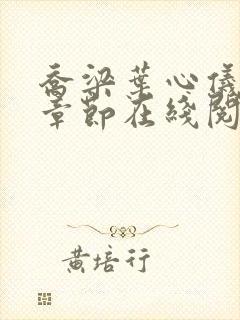 喬梁葉心儀
章節在綫閱
黃培行